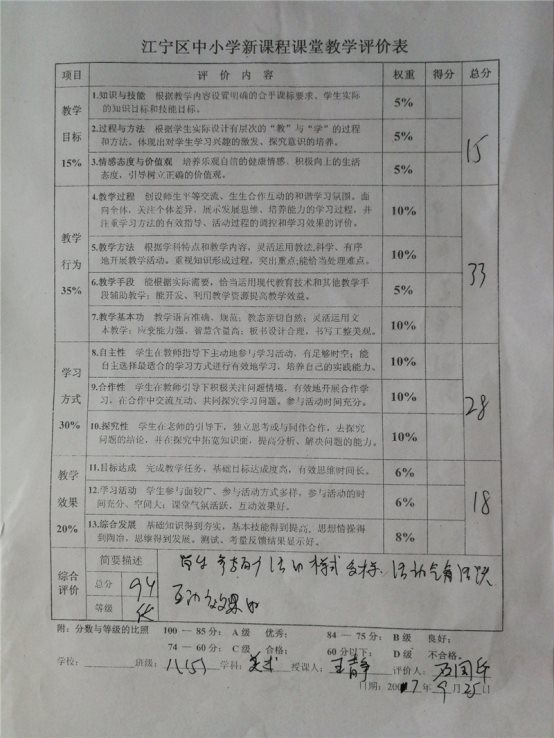 江宁区中小学新课程课堂教学评价表
项目 评价内容 权重 得分 总分
教学目标 15%
1.知识与技能 根据教学内容设置明确的合乎课标要求、学生实际
的知识目标和技能目标。 5%
2.过程与方法 根据学生实际设计有层次的“教”与“学”的过程
和方法，体现出对学生学习兴趣的激发、探究意识的培养。 5%
3.情感态度与价值观 培养乐观自信的健康情感、积极向上的生活
态度，引导树立正确的价值观。 5%
15
教学行为 35%
4.教学过程 创设师生平等交流、生生合作互动的和谐学习氛围。面
向全体，关注个体差异，展示发展思维、培养能力的学习过程，并
注重学习方法的有效指导、活动过程的调控和学习效果的评价。 10%
5.教学方法 根据学科特点和教学内容，灵活运用教法,科学、有序
地开展教学活动。重视知识形成过程，突出重点;能恰当处理难点。 10%
6.教学手段 能根据实际需要，恰当运用现代教育技术和其他教学手
段辅助教学；能开发、利用教学资源提高教学效益。 5%
7.教学基本功 教学语言准确、规范；教态亲切自然；灵活运用文
本教学；应变能力强，智慧含量高；板书设计合理，书写工整美观。 10%
33
学习方式 30%
8.自主性 学生在教师指导下主动地参与学习活动，有足够时空；能
自主选择最适合的学习方式进行有效地学习，培养自己的实践能力。 10%
9.合作性 学生在教师引导下积极关注问题情境，有效地开展合作学
习，在合作中交流互动、共同探究学习问题。参与活动时间充分。 10%
10.探究性 学生在老师的引导下，独立思考或与同伴合作，去探究
问题的结论，并在探究中拓宽知识面，提高分析、解决问题的能力。 10%
28
教学效果 20%
11.目标达成 完成教学任务，基础目标达成度高，有效思维时间长。 6%
12.学习活动 学生参与面较广、参与活动方式多样，参与活动的时
间充分、空间大；课堂气氛活跃，互动效果好。 6%
13.综合发展 基础知识得到夯实，基本技能得到提高，思想情操得
到陶冶，思维得到发展。测试、考量反馈结果显示好。 8%
18
综合评价
简要描述
总分 94
等级 优
互动效果好
附：分数与等级的比照 100 — 85分：A级 优秀； 84 — 75分：B级 良好；
74 — 60分：C级 合格； 60分以下： D级 不合格。
学校： 班级：八(5) 学科：美术 授课人：王静 评价人：
日期：2007年9月25日